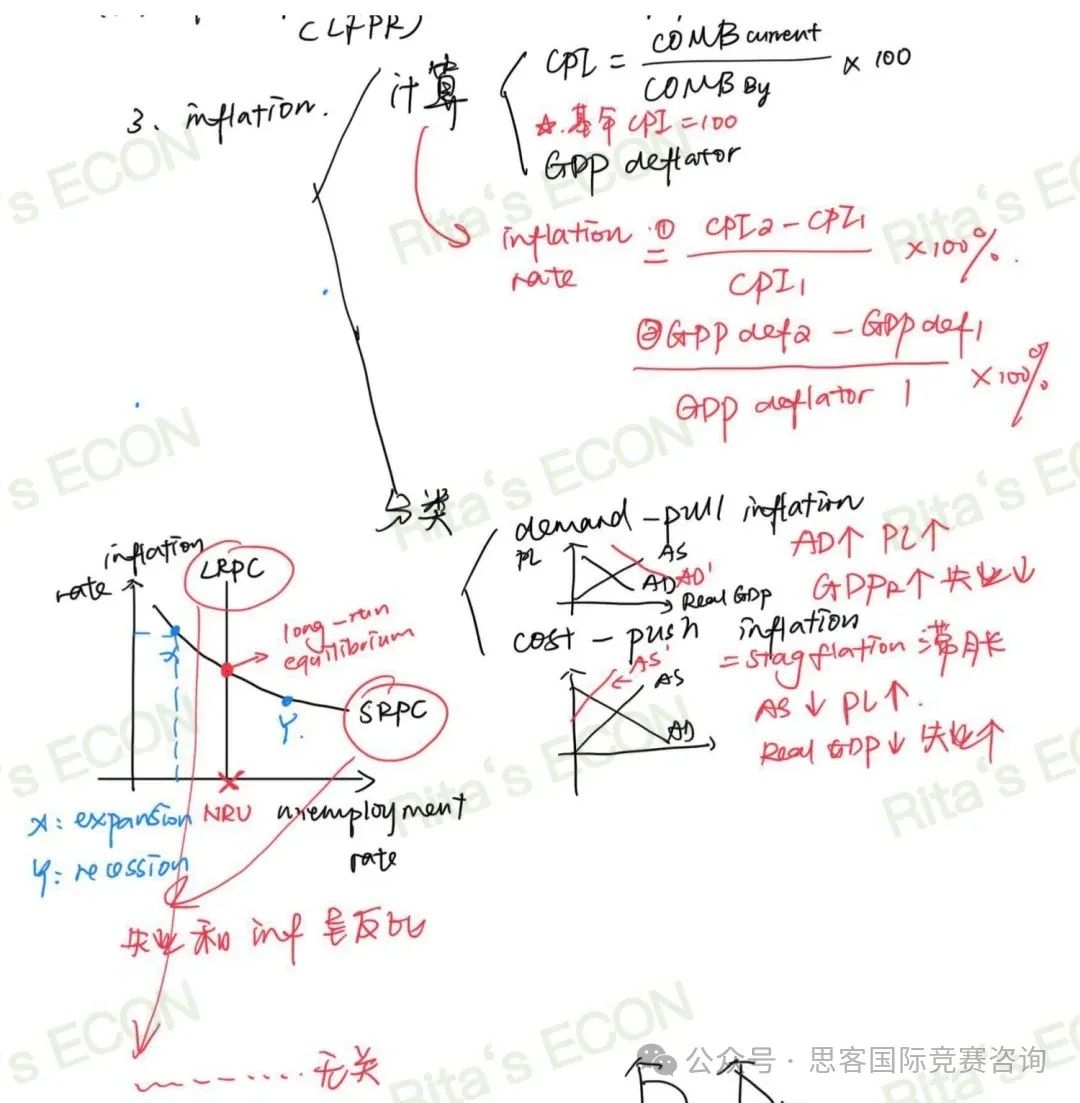 (LFPR)
3、inflation.
计算
CPI = COMB current / COMB By × 100
☆.基年 CPI = 100
GDP deflator
inflation rate = ① CPI2 - CPI1 / CPI1 × 100%.
② GDP def2 - GDP def1 / GDP deflator 1 × 100%
分类
demand-pull inflation
PL
AS
AD
AD'
Real GDP
AD↑ PL↑
GDPR↑ 失业↓
cost-push inflation
= stagflation 滞胀
AS'
AS
AD
AS↓ PL↑.
Real GDP↓ 失业↑
inflation
rate
LRPC
long-run
equilibrium
SRPC
X
Y.
NRU
unemployment
rate
X: expansion
Y: recession
失业和 inf 呈反比
无关
Rita's ECON
公众号·思客国际竞赛咨询